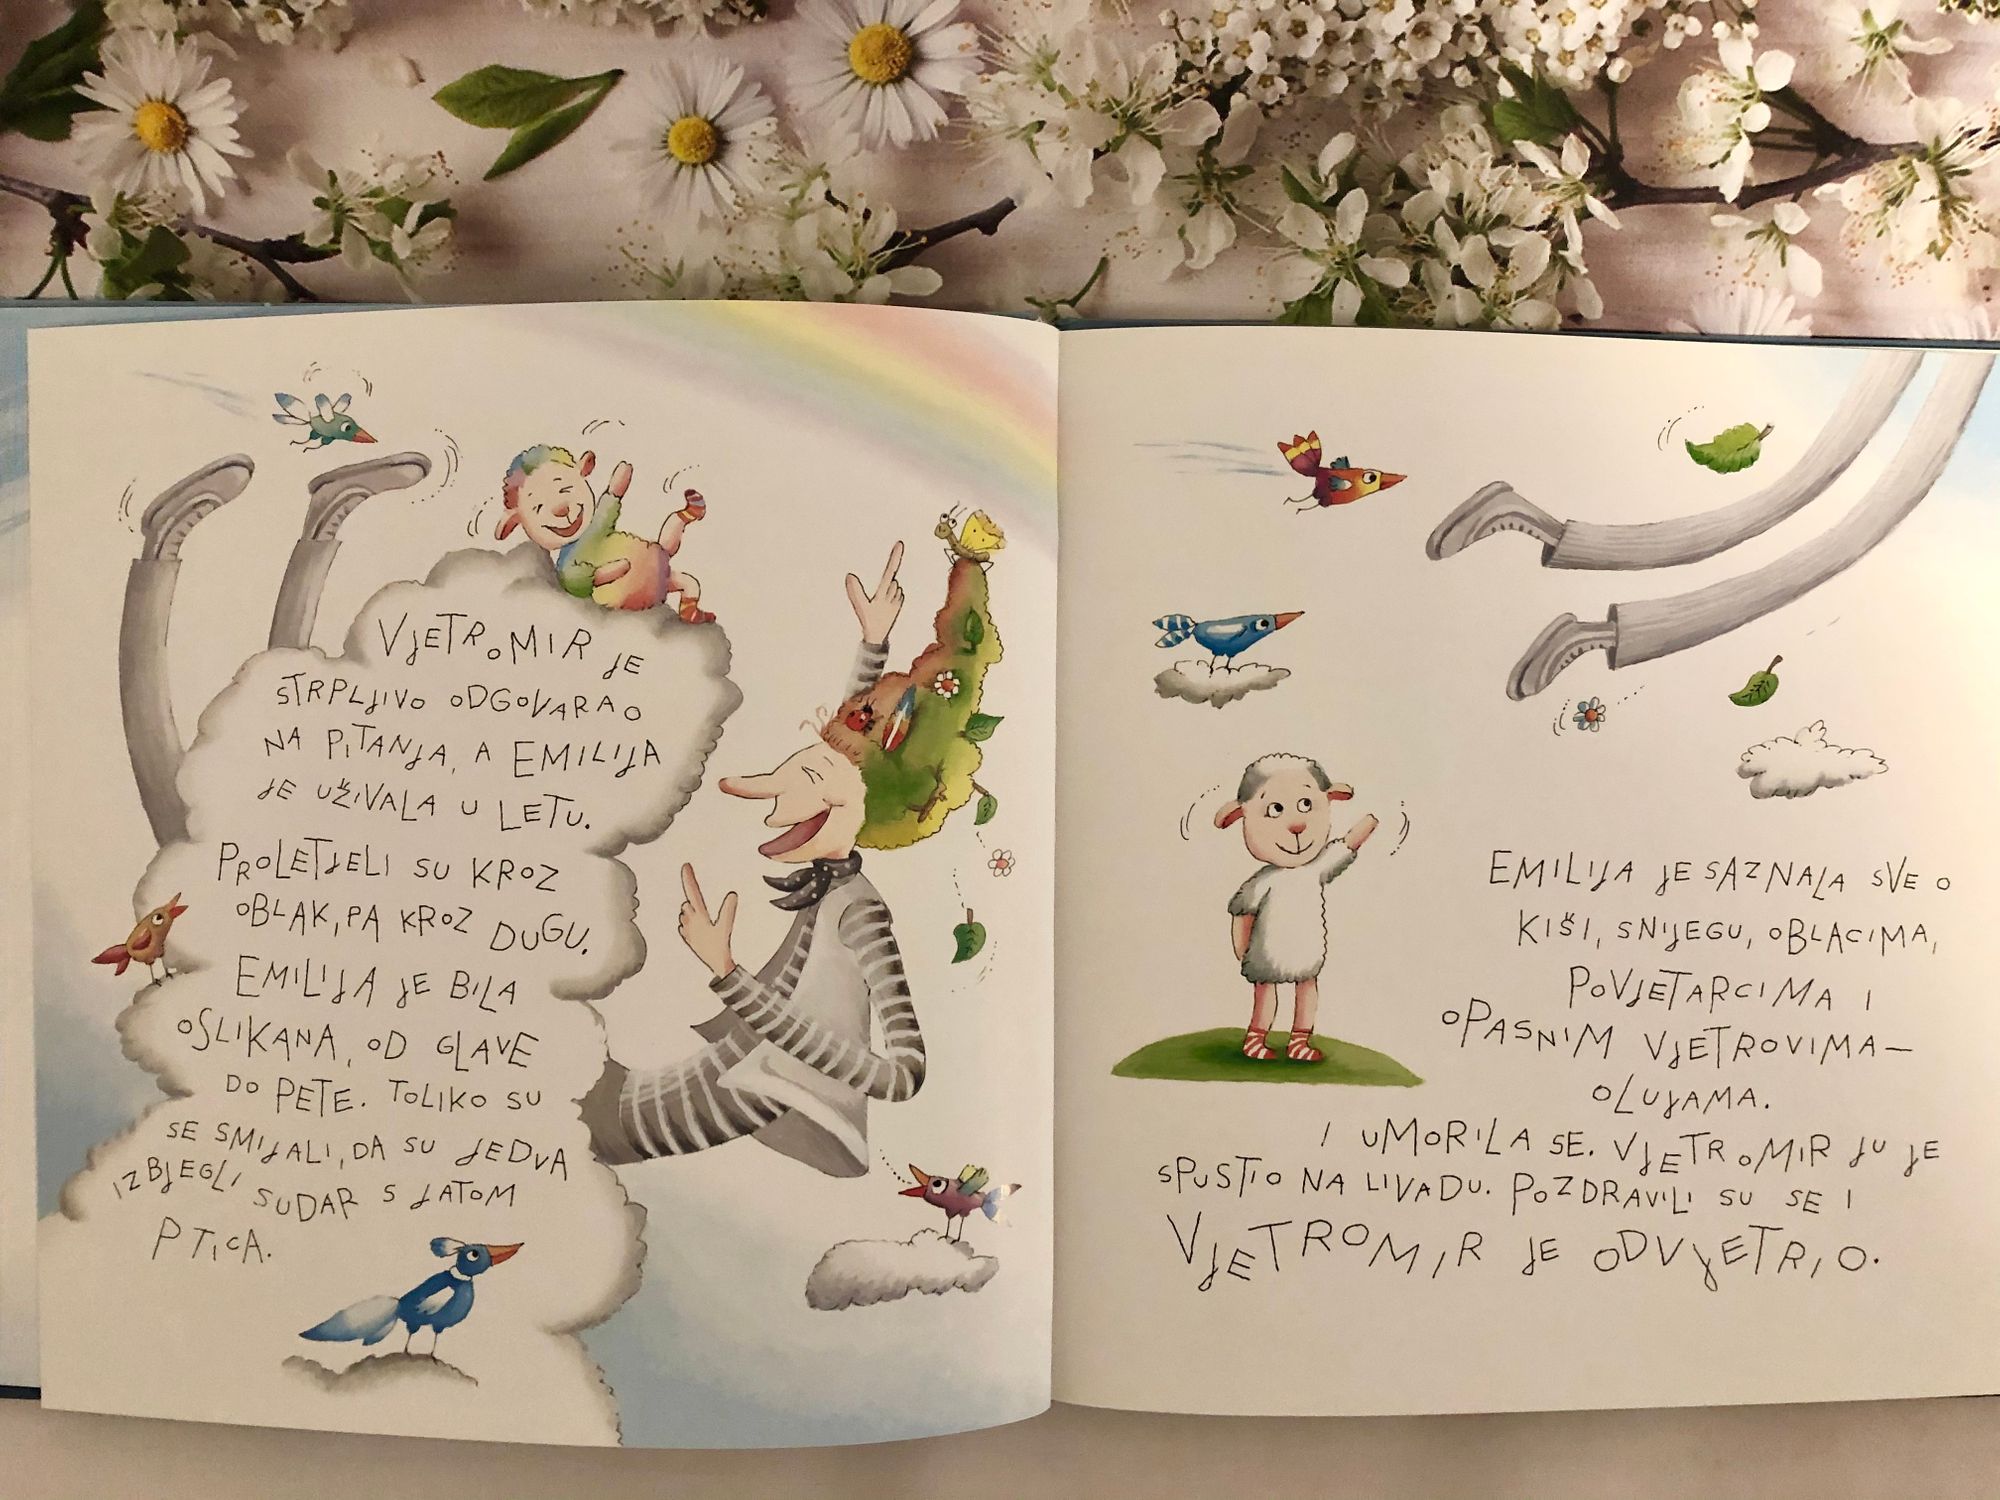 VJETROMIR JE
STRPLJIVO ODGOVARAO
NA PITANJA, A EMILIJA
JE UŽIVALA U LETU.
PROLETJELI SU KROZ
OBLAK, PA KROZ DUGU.
EMILIJA JE BILA
OSLIKANA, OD GLAVE
DO PETE. TOLIKO SU
SE SMIJALI, DA SU JEDVA
IZBJEGLI SUDAR S JATOM
PTICA.
EMILIJA JE SAZNALA SVE O
KIŠI, SNIJEGU, OBLACIMA,
POVJETARCIMA I
OPASNIM VJETROVIMA–
OLUJAMA.
I UMORILA SE. VJETROMIR JU JE
SPUSTIO NA LIVADU. POZDRAVILI SU SE I
VJETROMIR JE ODVJETRIO.